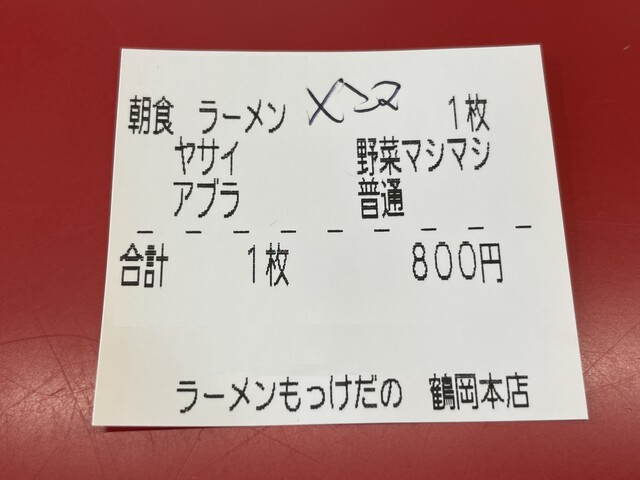 朝食 ラーメン 1枚
ヤサイ 野菜マシマシ
アブラ 普通
合計 1枚 800円
ラーメンもっけだの 鶴岡本店